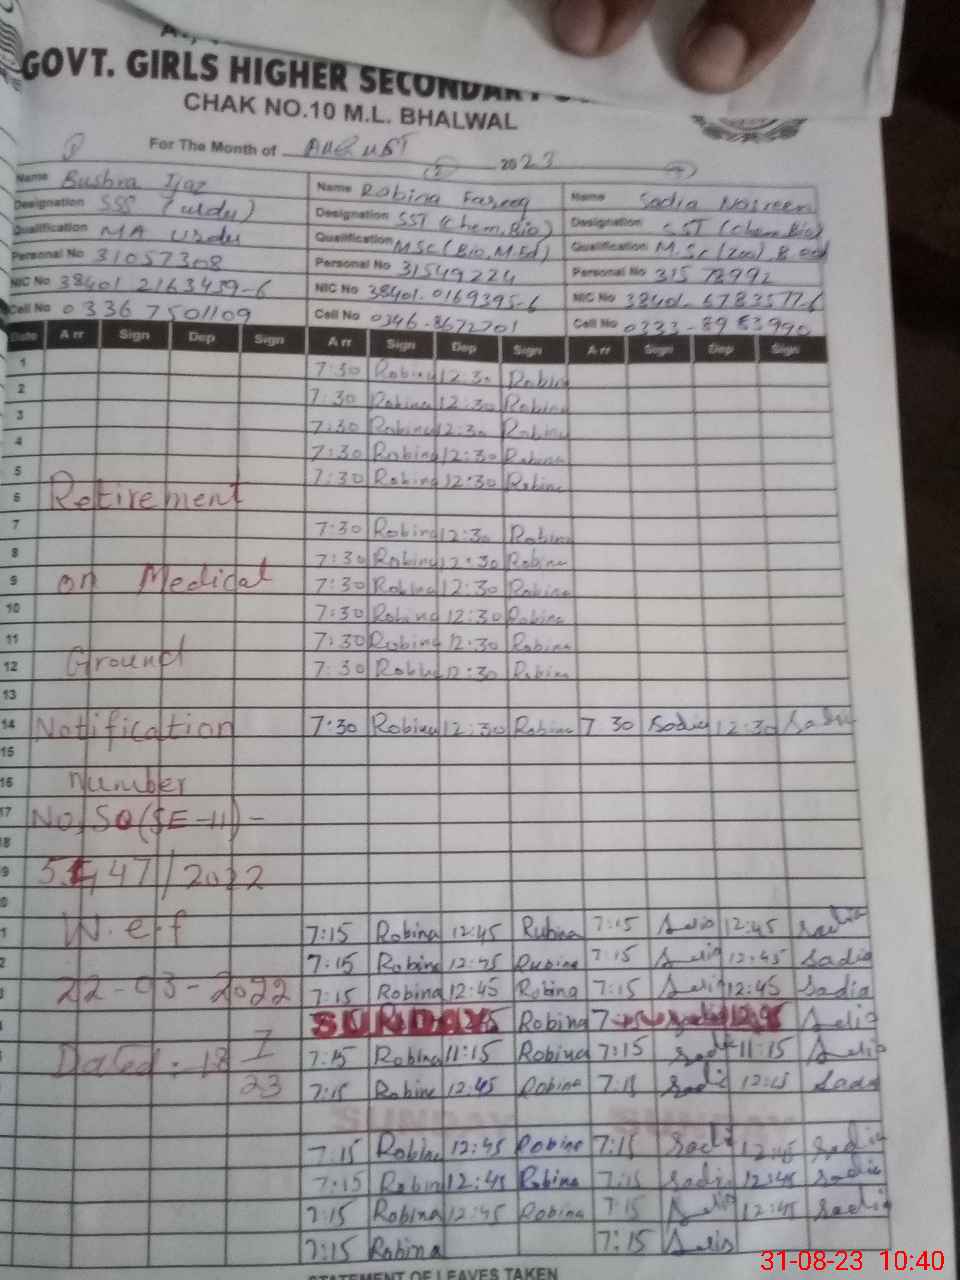 GOVT. GIRLS HIGHER SECONDARY
CHAK NO.10 M.L. BHALWAL
For The Month of AUGUST 2023
Name Bushra Ijaz Name Robina Fareeq Name Sadia Nasreen
Designation SSS (urdu) Designation SST (Chem, Bio) Designation SST (Chem Bio)
Qualification MA Urdu Qualification MSc (Bio, M.Ed) Qualification M.Sc (Zoo) B.ed
Personal No 31057308 Personal No 31549224 Personal No 31578992
NIC No 38401 2163459-6 NIC No 38401.0169395-6 NIC No 38401. 6783577-6
Cell No 0336 7501109 Cell No 0346-8672701 Cell No 0333-8983990
Date Arr Sign Dep Sign Arr Sign Dep Sign Arr Sign Dep Sign
1 7:30 Robina 12:30 Robina
2 7:30 Robina 12:30 Robina
3 7:30 Robina 12:30 Robina
4 7:30 Robina 12:30 Robina
5 7:30 Robina 12:30 Robina
6 Retirement
7 7:30 Robina 12:30 Robina
8 7:30 Robina 12:30 Robina
9 on Medical 7:30 Robina 12:30 Robina
10 7:30 Robina 12:30 Robina
11 7:30 Robina 12:30 Robina
12 Ground 7:30 Robina 12:30 Robina
13
14 Notification 7:30 Robina 12:30 Robina 7 30 Sadia 12:30 Sadia
15
16 Number
17 No, SO (SE-III) -
18
9 47/2022
0
1 W.e.f 7:15 Robina 12:45 Robina 7:15 Sadia 12:45 Sadia
2 7:15 Robina 12:45 Robina 7:15 Sadia 12:45 Sadia
3 22-03-2022 7:15 Robina 12:45 Robina 7:15 Sadia 12:45 Sadia
SUNDAY Robina Sadia
Dated: 18 7:15 Robina 11:15 Robina 7:15 Sadia 11:15 Sadia
23 7:15 Robina 12:45 Robina 7:15 Sadia 12:45 Sadia
SUNDAY SUNDAY
7:15 Robina 12:45 Robina 7:15 Sadia 12:45 Sadia
7:15 Robina 12:45 Robina 7:15 Sadia 12:45 Sadia
7:15 Robina 12:45 Robina 7:15 Sadia 12:45 Sadia
7:15 Robina 7:15 Sadia
STATEMENT OF LEAVES TAKEN
31-08-23 10:40